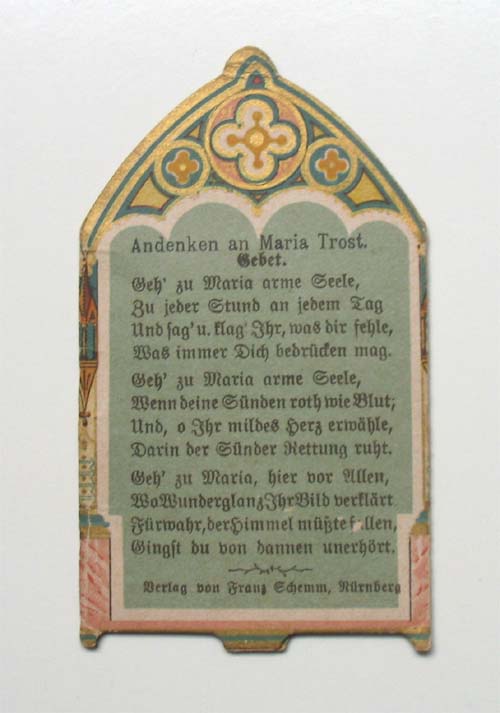 Andenken an Maria Trost.
Gebet.
Geh' zu Maria arme Seele,
Zu jeder Stund an jedem Tag
Und sag' u. klag' Ihr, was dir fehle,
Was immer Dich bedrücken mag.
Geh' zu Maria arme Seele,
Wenn deine Sünden roth wie Blut;
Und, o Ihr mildes Herz erwähle,
Darin der Sünder Rettung ruht.
Geh' zu Maria, hier vor Allen,
Wo Wunderglanz Ihr Bild verklärt
Fürwahr, der Himmel müßte fallen,
Gingst du von dannen unerhört.
Verlag von Franz Schemm, Nürnberg